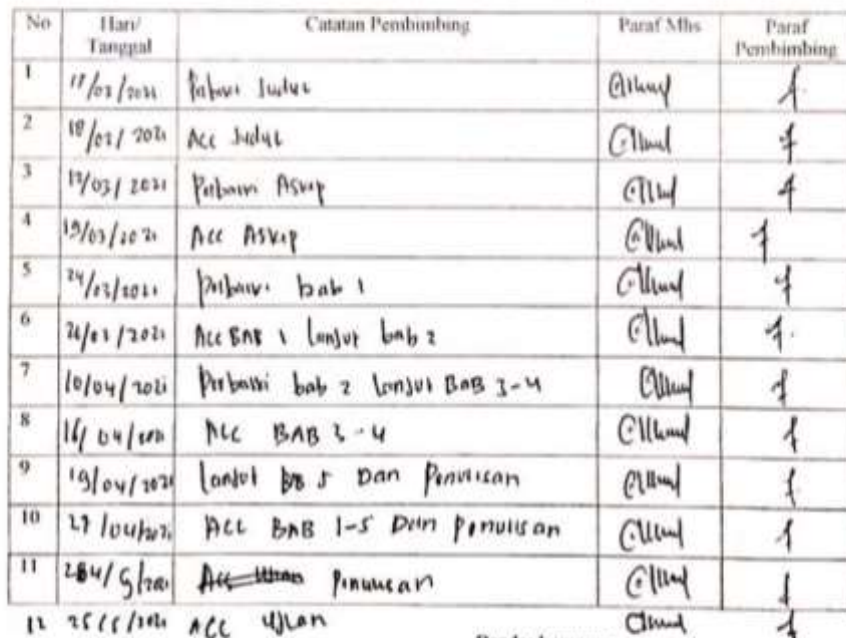 No Hari/ Tanggal Catatan Pembimbing Paraf Mhs Paraf Pembimbing
1 Judul
2 18/02/2021 Acc Judul
3 Perbaiki Askep
4 19/03/2021 Acc Askep
5 24/03/2021 Perbaiki bab 1
6 Acc BAB 1 lanjut bab 2
7 10/04/2021 Perbaiki bab 2 lanjut BAB 3-4
8 16/04/2021 ACC BAB 3-4
9 19/04/2021 lanjut 5 Dan Penulisan
10 27/04/2021 ACC BAB 1-5 Dan Penulisan
11 Penulisan
12 25/5/2021 ACC Ujian